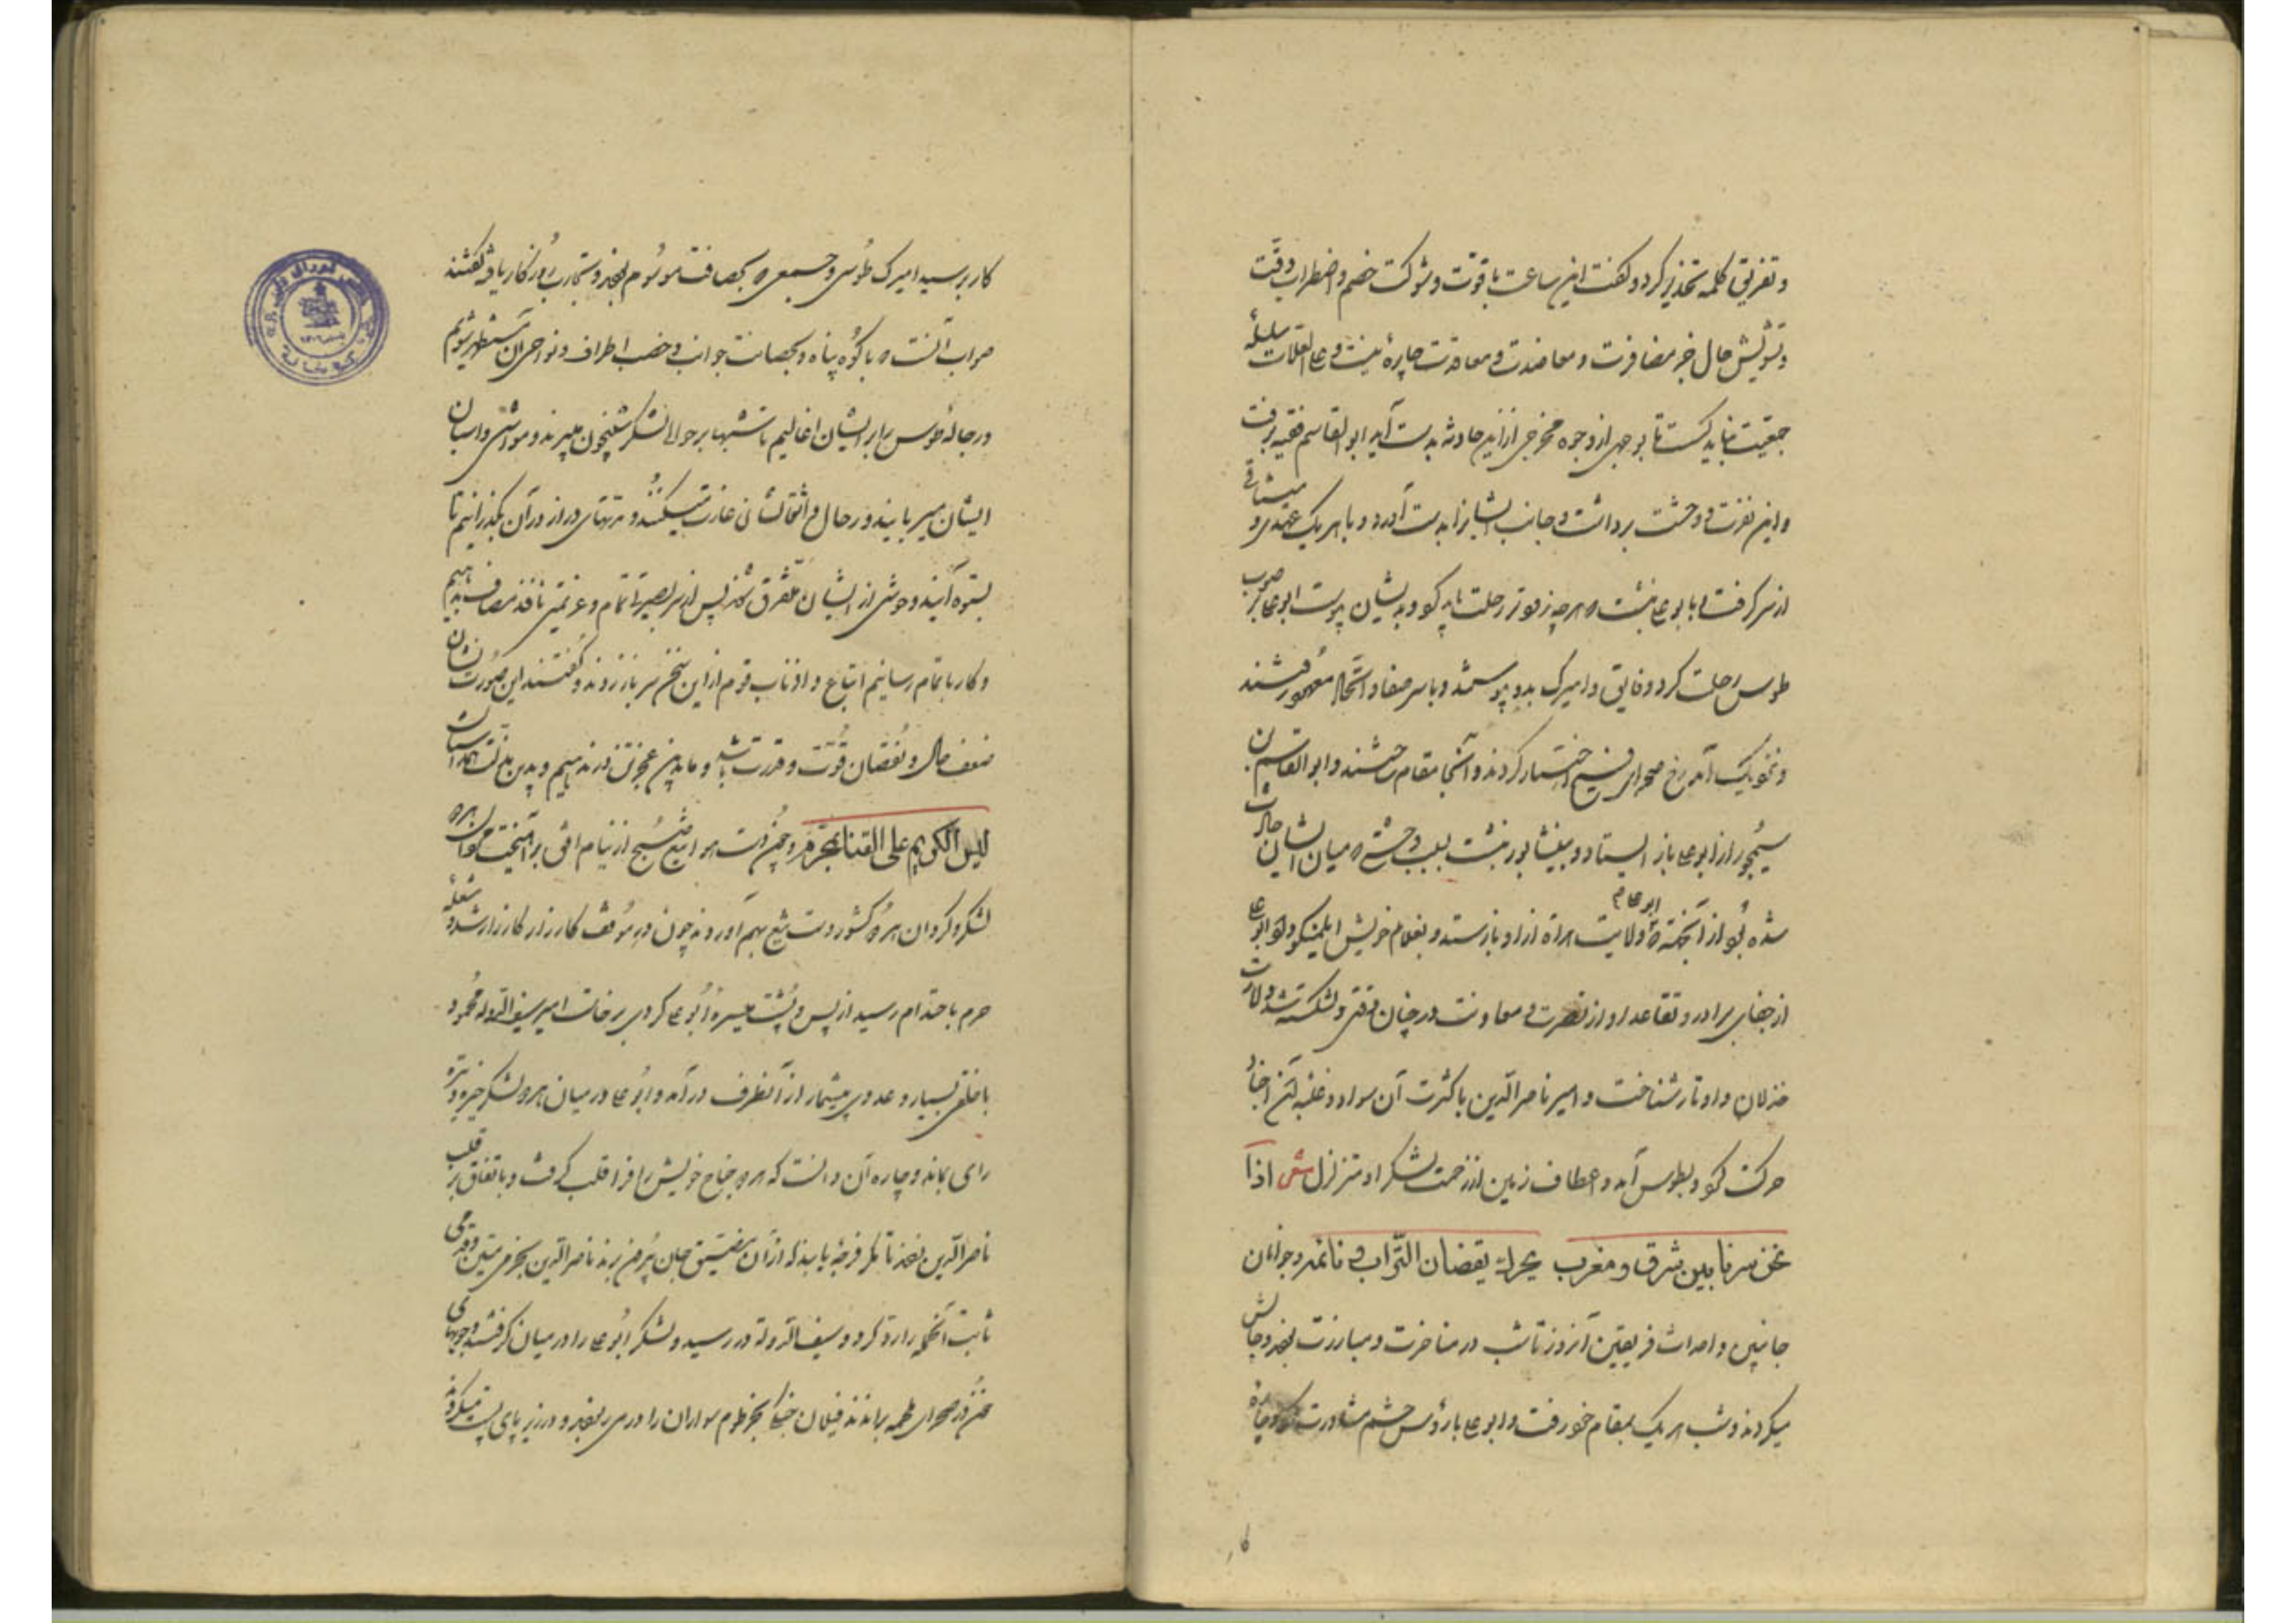 و تفریق کلمه تحذیر کرد و گفت این ساعت با قوّت و شوکت خصم و اضطراب وقت
و تشویش حال جز مضافرت و معاضدت و معاونت چارهٔ نیست و علی العلات سلسلهٔ
جمعیّت نباید گسست تا بوجهی از وجوه مخرجی ازین حادثه بدست آید ابو القاسم فقیه برفت
و این نفرت و وحشت برداشت و جانب ایشان را بدست آورد و با هر یک عهدی و میثاقی
از سر گرفت ابو علی هرچه زودتر رحلت باید کرد و بدیشان پیوست ابو علی بر صوب
طوس رحلت کرد و فایق و امیرک بدو پیوستند و با سر صفا و اتحاد معهود رفتند
و نزدیک اندرخ صحرای فسیح اختیار کردند و آنجا مقام ساختند و ابو القاسم بن
سیمجور از ابو علی باز ایستاد و بنیشابور بنشست بسبب وحشتی که میان ایشان حادث
شده بود از آنچه ابو علی ولایت هراة ازو باز ستد و بغلام خویش ایلمنکو داد و ابو علی
از جفای برادر و تقاعد او از نصرت و معاونت در چنان وقتی دلشکسته شد و لازمت
خذلان و ادبار شناخت و امیر ناصر الدّین با کثرت آن سواد و غلبهٔ آن اجناد
حرکت کرد و بطوس آمد و اعطاف زمین از زحمت لشکر او متزلزل ش اذا
نحن سرنا بین شرق و مغرب تحرک یقضان التّراب و نائمه و جوانان
جانبین و احداث فریقین آنروز تا شب در مناجزت و مبارزت بودند و چالش
میکردند و شب هر یک بمقام خود رفت و ابو علی با رؤس حشم مشاورت کرد و چارهٔ
کار پرسید امیرک طوسی و جمعی که بحصافت موسوم بودند و تجارب روزگار یافته گفتند
صواب آنست که با کوه پناه دهیم و بحصانت جوانب و خصب اطراف و نواحی آن مستظهر شویم
و رجالهٔ طوس را بر ایشان اغالیم تا شبها بر حوالی لشکر شبیخون میبرند و مواشی و اسبان
ایشان میربایند و رحال و اثقالشان غارت میکنند و مدتهای دراز در آن بگذرانیم تا
بستوه آیند و حوشی از ایشان متفرق شوند پس از سر بصیرت تمام و عزیمتی نافذ مصاف بدهیم
و کار باتمام رسانیم اتباع و اذناب قوم از این سخن سر باز زدند و گفتند این صورت نشان
ضعف حال و نقصان قوّت و قدرت باشد و ما بدین عجز تن در ندهیم و بدین مذلّت همداستان
لیس الکریم علی القنا بمحرّم و چون دست هوا تیغ صبح از نیام افق برآهیخت جوانان هر دو
لشکر و گردان هر دو کشور دست بتیغ بهم آوردند چون در موقف کارزار کار زار شد و شعلهٔ
حرب باحتدام رسید از پس پشت میسرهٔ ابو علی گردی برخاست امیر سیف الدّوله محمود
با خلقی بسیار و عددی بیشمار از آنطرف درآمد و ابو علی در میان هر دو لشکر خیره و تیره
رای بماند و چاره آن دانست که هر دو جناح خویش را فرا قلب گرفت و باتفاق بر قلب
ناصر الدّین زدند تا مگر فرجهٔ یابند که از آن مضیق جان بیرون برند ناصر الدّین بحزمی متین و قدمی
ثابت آنحمله را رد کرد و سیف الدّوله در رسید و لشکر ابو علی را در میان گرفتند و جویهای
خون در صحرای ملحمه براندند فیلان جنگی بخرطوم سواران را در می ربودند و در زیر پای پست میکردند